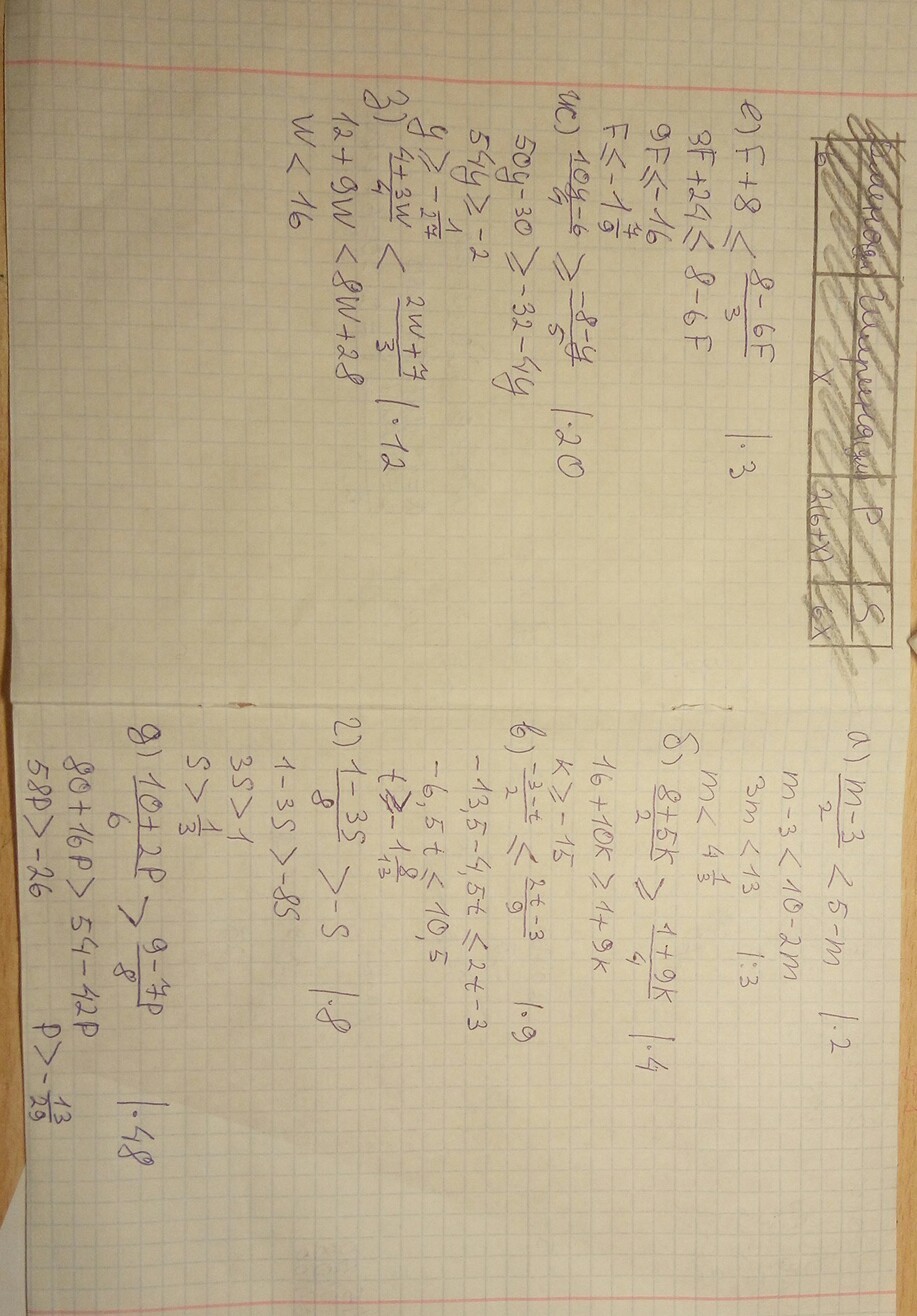 Длина(см) Ширина(см) P S
6 x 2(6+x) 6x
е) F+8 ≤ (8-6F)/3 |·3
3F+24 ≤ 8-6F
9F ≤ -16
F ≤ -1 7/9
ж) (10y-6)/4 ≥ (-8-y)/5 |·20
50y-30 ≥ -32-4y
54y ≥ -2
y ≥ -1/27
з) (4+3W)/4 < (2W+7)/3 |·12
12+9W < 8W+28
W < 16
а) (m-3)/2 < 5-m |·2
m-3 < 10-2m
3m < 13 |:3
m < 4 1/3
б) (8+5k)/2 ≥ (1+9k)/4 |·4
16+10k ≥ 1+9k
k ≥ -15
в) (-3-t)/2 ≤ (2t-3)/9 |·9
-13,5-4,5t ≤ 2t-3
-6,5t ≤ 10,5
t ≥ -1 8/13
г) (1-3S)/8 > -S |·8
1-3S > -8S
3S > 1
S > 1/3
д) (10+2P)/6 > (9-7P)/8 |·48
80+16P > 54-42P
58P > -26 P > -13/29